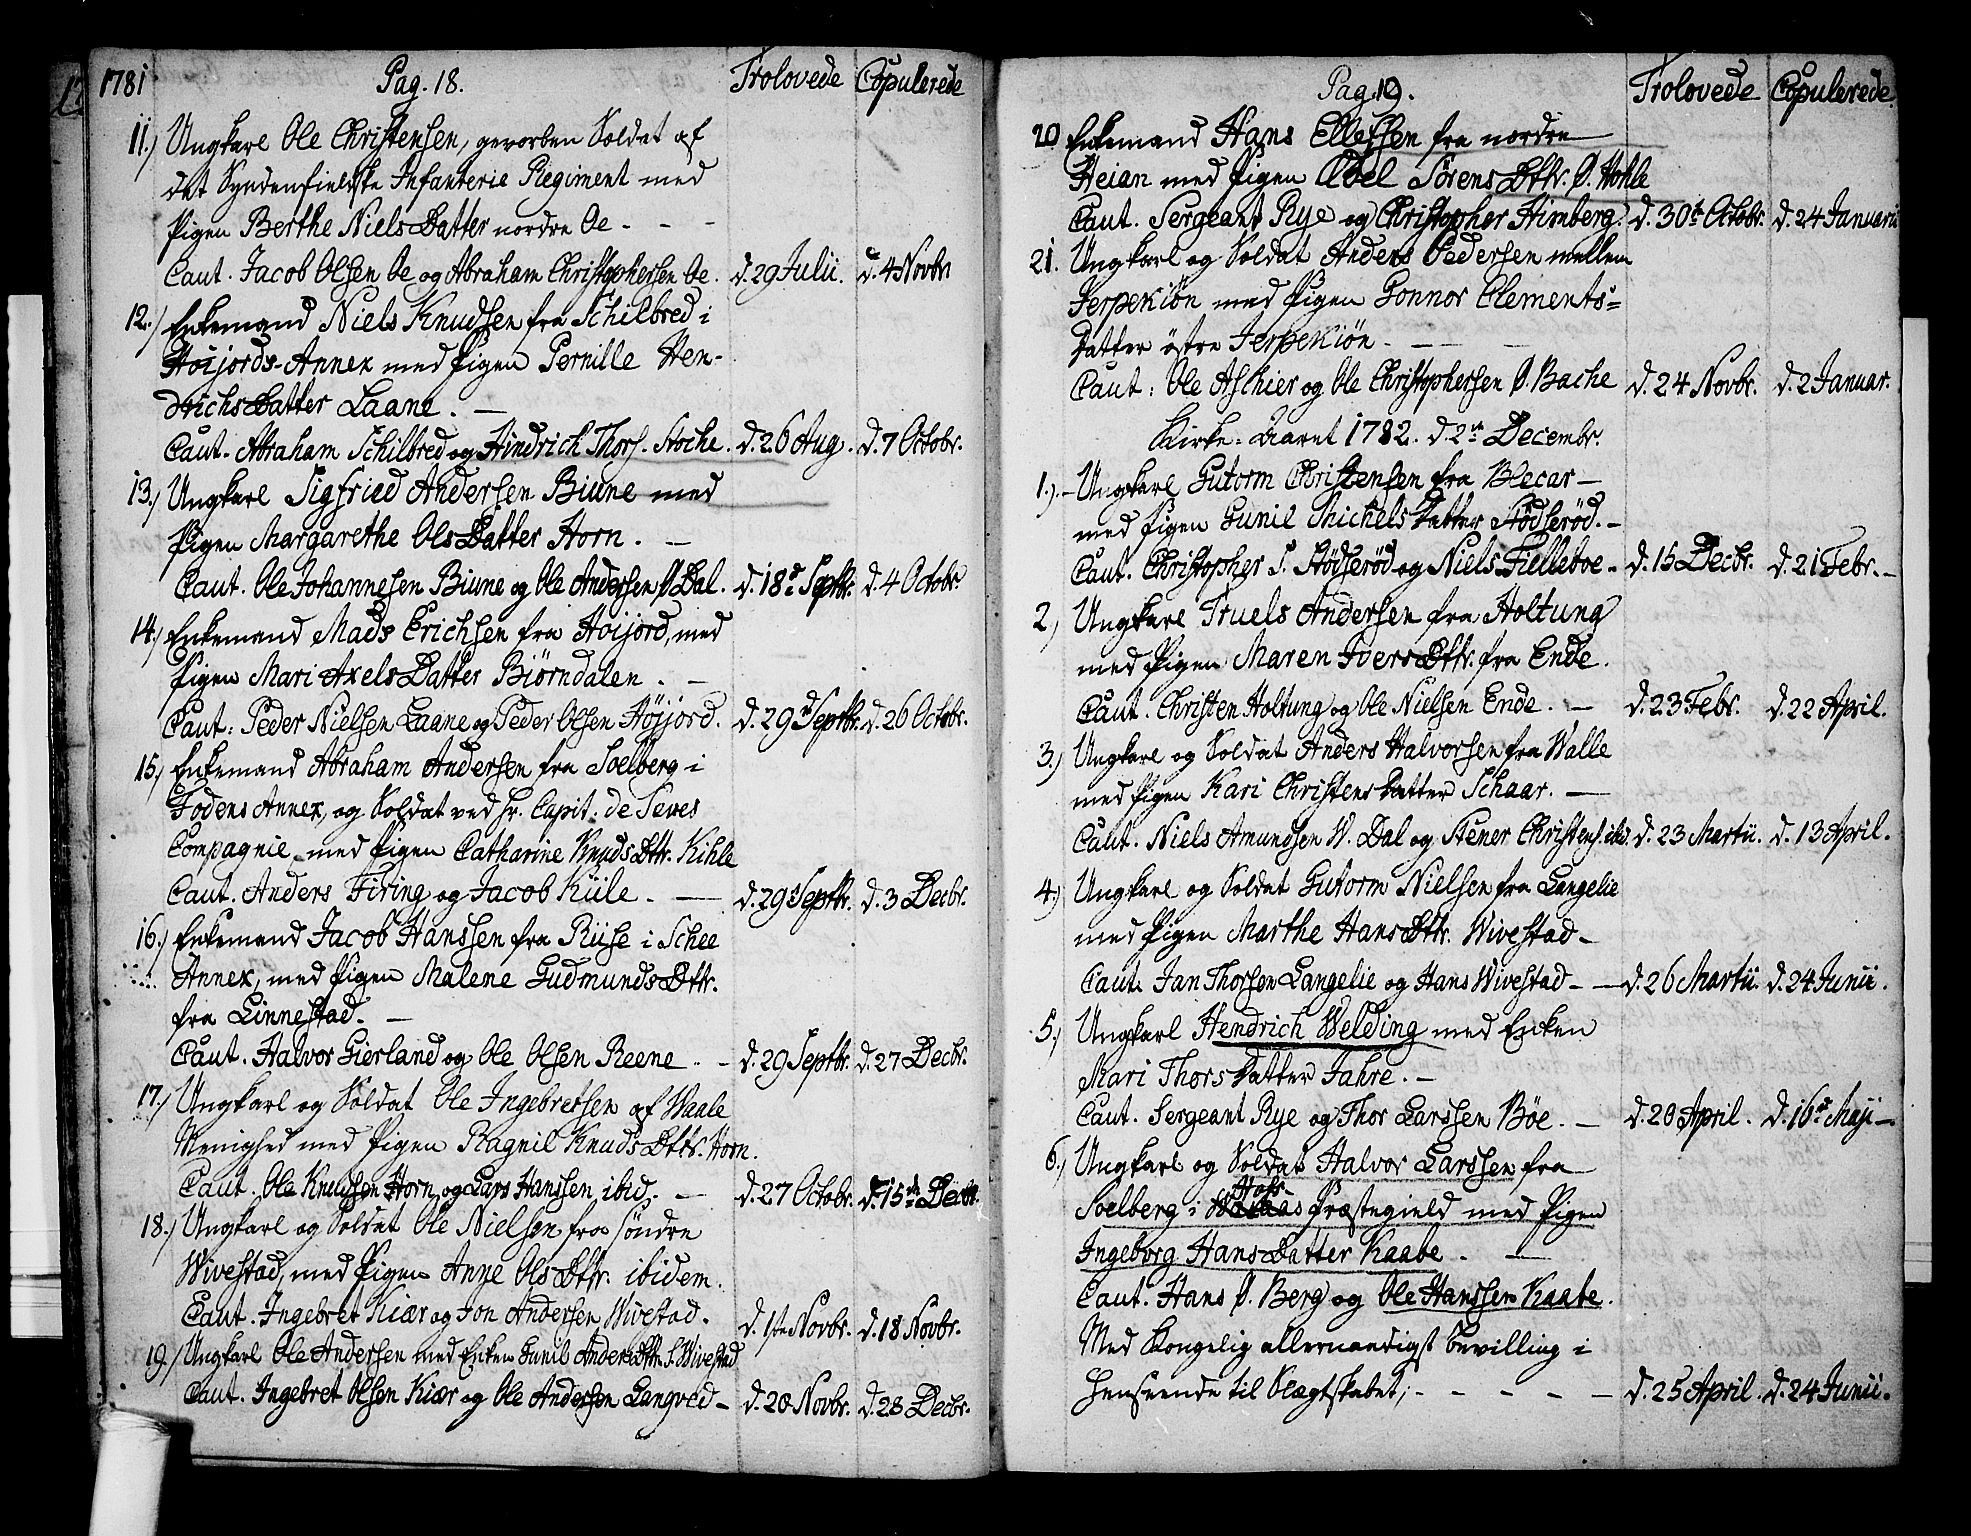 1781 Pag. 18. Trolovede Copulerede
11.) Ungkarl Ole Christensen, gevorben Soldat af
det Syndenfieldske Infanterie Regiment med
Pigen Berthe NielsDatter nordre Oe - - -
Caut. Jacob Olsen Oe og Abraham Christophersen Oe. d. 29 Julii. d. 4 Novbr
12.) Enkemand Niels Knudsen fra Schilbred i
Höijords-Annex med Pigen Pernille Hen-
drichsDatter Laane. -
Caut. Abraham Schilbred og Hindrich Thors. Stoche. d. 26 Aug. d. 7 Octobr.
13.) Ungkarl Sigfried Andersen Biune med
Pigen Margarethe OlsDatter Horn. -
Caut. Ole Johannesen Biune og Ole Andersen Ø Dal. d. 18 Septbr. d. 4 Octobr
14.) Enkemand Mads Erichsen fra Höijord, med
Pigen Mari AxelsDatter Biörndalen. -
Caut: Peder Nielsen Laane og Peder Olsen Höjjord. d. 29 Septbr. d. 26 Octobr.
15.) Enkemand Abraham Andersen fra Soelberg i
Fodens Annex, og Soldat ved Hr. Capit: de Seves
Compagnie, med Pigen Catharine KnudsDttr. Kihle
Caut. Anders Firing og Jacob Küle. - d. 29 Septbr. d. 3 Decbr.
16.) Enkemand Jacob Hanssen fra Riise i Schee
Annex, med Pigen Malene GudmundsDttr.
fra Linnestad. -
Caut. Halvor Gierland og Ole Olsen Reene - d. 29 Septbr. d. 27 Decbr.
17.) Ungkarl og Soldat Ole Ingebretsen af Waale
Menighed med Pigen Ragnil KnudsDttr. Horn.
Caut. Ole Knudsen Horn og Lars Hanssen ibid. - d. 27 Octobr. d. 15 Decbr.
18.) Ungkarl og Soldat Ole Nielsen fra söndre
Wivestad, med Pigen Anne OlsDttr. ibidem.
Caut. Ingebret Kiær og Jon Andersen Wivestad. d. 1ste Novbr. d. 18 Novbr.
19.) Ungkarl Ole Andersen med Enken Gunil AndersDttr S. Wivestad
Caut. Ingebret Olsen Kiær og Ole Andersen Langved - d. 20 Novbr. d. 28 Decbr.
Pag. 19. Trolovede Copulerede
20 Enkemand Hans Ellefsen fra nordre
Heian med Pigen Abel SörensDttr. Ø. Hohle
Caut. Sergeant Rye og Christopher Himberg. d. 30te Octobr. d. 24 Januarii
21. Ungkarl og Soldat Anders Pedersen mellem
Jerpekiön med Pigen Gonnor Clements=
Datter östre Jerpekiön. -
Caut: Ole Askier og Ole Christophersen Ø. Bache d. 24 Novbr. d. 2 Januar.
Kirke-Aaret 1782. d 2den Decembr.
1.). - Ungkarl Gutorm Christensen fra Blecar -
med Pigen Gunil MichelsDatter Stödseröd. -
Caut. Christopher S. Stödseröd og Niels Fielleboe - d. 15 Decbr. d. 21 Febr. -
2.) Ungkarl Truels Andersen fra Holtung
med Pigen Maren IversDttr. fra Ende.
Caut. Christen Holtung og Ole Nielsen Ende. - d. 23 Febr. d. 22 April.
3.) Ungkarl og Soldat Anders Halvorsen fra Walle
med Pigen Kari ChristensDatter Schaar. -
Caut. Niels Amundsen W. Dal og Stener Christens. ibid. d. 23 Martii. d. 13 April.
4.) Ungkarl og Soldat Gutorm Nielsen fra Langelie
med Pigen Marthe HansDttr. Wivestad -
Caut. Jan Thorssen Langelie og Hans Wivestad - - d. 26 Martii. d. 24 Junii.
5.) Ungkarl Hendrich Welding med Enken
Mari ThorsDatter Fahre. -
Caut. Sergeant Rye og Thor Larssen Böe. - d. 20 April. d. 16de Maji -
6.) Ungkarl og Soldat Halvor Larssen fra
Hofs
Soelberg i Præstegield med Pigen
Ingeborg HansDatter Kaabe. -
Caut. Hans Ø. Berg og Ole Hanssen Kaabe.
Med Kongelig allernaadigst bevilling i
Henseende til Slægtskabet; - - - - - d. 25 April. d. 24 Junii.